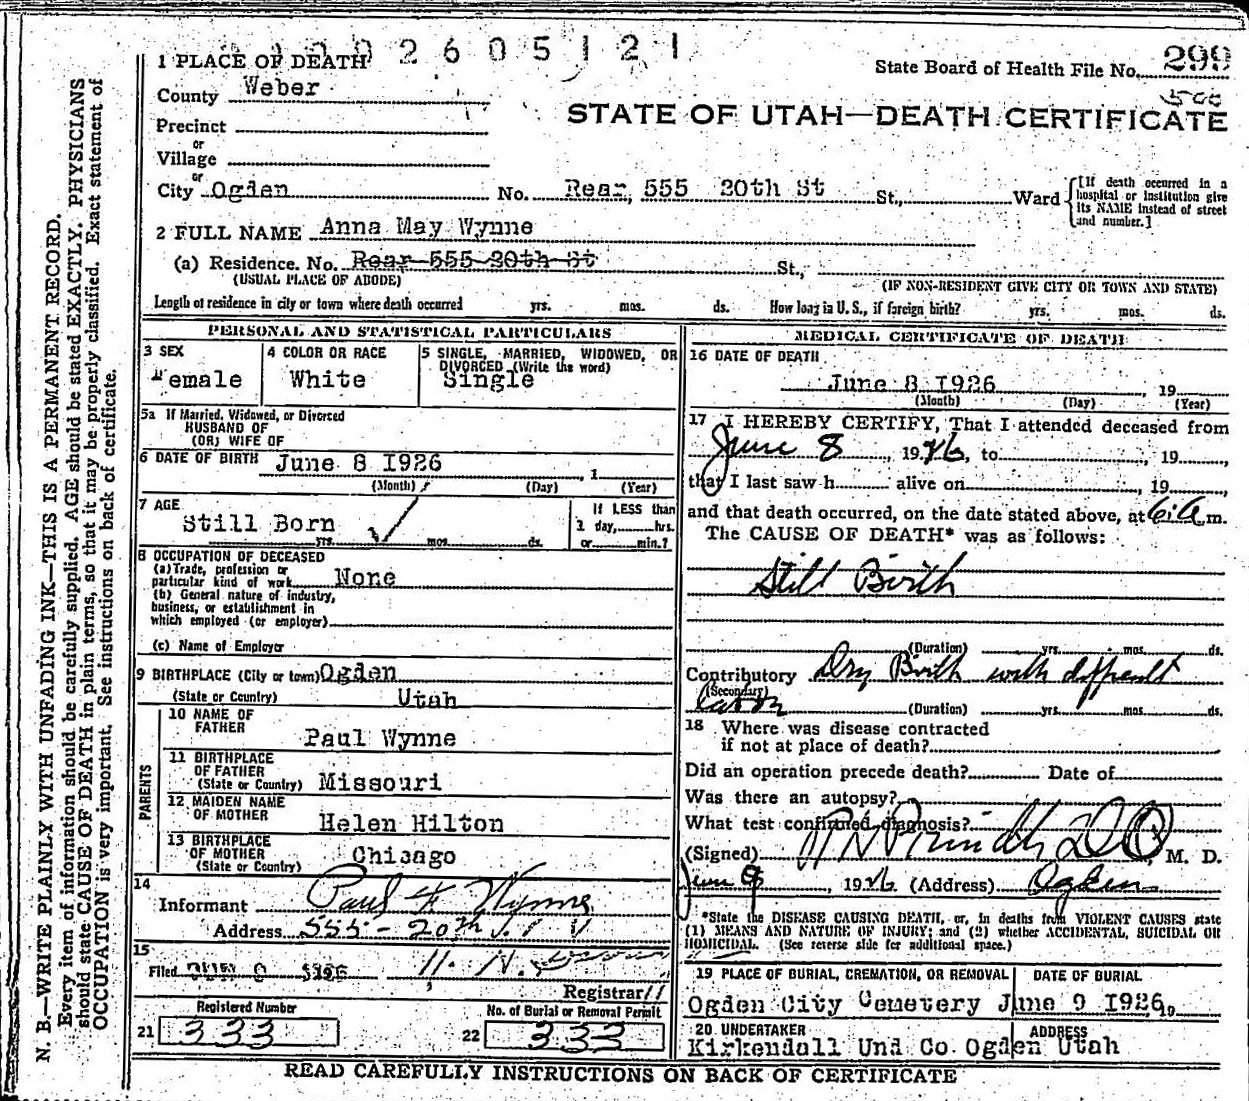 0002605121
1 PLACE OF DEATH
State Board of Health File No. 299
County Weber
500
STATE OF UTAH—DEATH CERTIFICATE
Precinct
or
Village
or
City Ogden No. Rear, 555 20th St St., Ward
[If death occurred in a hospital or institution give its NAME instead of street and number.]
2 FULL NAME Anna May Wynne
(a) Residence. No. Rear 555 20th St St.,
(USUAL PLACE OF ABODE) (IF NON-RESIDENT GIVE CITY OR TOWN AND STATE)
Length of residence in city or town where death occurred yrs. mos. ds. How long in U. S., if foreign birth? yrs. mos. ds.
PERSONAL AND STATISTICAL PARTICULARS
3 SEX
Female
4 COLOR OR RACE
White
5 SINGLE, MARRIED, WIDOWED, OR DIVORCED (Write the word)
Single
5a If Married, Widowed, or Divorced
HUSBAND OF
(OR) WIFE OF
6 DATE OF BIRTH June 8 1926, 1
(Month) (Day) (Year)
7 AGE
Still Born
yrs. mos. ds.
If LESS than
1 day, hrs.
or min.?
8 OCCUPATION OF DECEASED
(a) Trade, profession or
particular kind of work None
(b) General nature of industry,
business, or establishment in
which employed (or employer)
(c) Name of Employer
9 BIRTHPLACE (City or town) Ogden
(State or Country) Utah
PARENTS
10 NAME OF
FATHER Paul Wynne
11 BIRTHPLACE
OF FATHER
(State or Country) Missouri
12 MAIDEN NAME
OF MOTHER Helen Hilton
13 BIRTHPLACE
OF MOTHER
(State or Country) Chicago
14
Informant Paul F Wynne
Address 555 - 20th St
15
Filed 1926
Registrar
Registered Number
21 333
No. of Burial or Removal Permit
22 333
MEDICAL CERTIFICATE OF DEATH
16 DATE OF DEATH
June 8 1926, 19
(Month) (Day) (Year)
17 I HEREBY CERTIFY, That I attended deceased from
June 8, 1926, to , 19 ,
that I last saw h alive on , 19 ,
and that death occurred, on the date stated above, at 6:A m.
The CAUSE OF DEATH* was as follows:
Still Birth
(Duration) yrs. mos. ds.
Contributory Dry Birth with difficult
(Secondary)
Labor (Duration) yrs. mos. ds.
18 Where was disease contracted
if not at place of death?
Did an operation precede death? Date of
Was there an autopsy?
What test confirmed diagnosis?
(Signed) DO, M. D.
June 9, 1926 (Address) Ogden
*State the DISEASE CAUSING DEATH, or, in deaths from VIOLENT CAUSES state
(1) MEANS AND NATURE OF INJURY; and (2) whether ACCIDENTAL, SUICIDAL OR
HOMICIDAL. (See reverse side for additional space.)
19 PLACE OF BURIAL, CREMATION, OR REMOVAL
Ogden City Cemetery
DATE OF BURIAL
June 9 1926
20 UNDERTAKER
Kirkendall Und Co
ADDRESS
Ogden Utah
READ CAREFULLY INSTRUCTIONS ON BACK OF CERTIFICATE
N. B.—WRITE PLAINLY WITH UNFADING INK—THIS IS A PERMANENT RECORD.
Every item of information should be carefully supplied. AGE should be stated EXACTLY. PHYSICIANS
should state CAUSE OF DEATH in plain terms, so that it may be properly classified. Exact statement of
OCCUPATION is very important. See instructions on back of certificate.